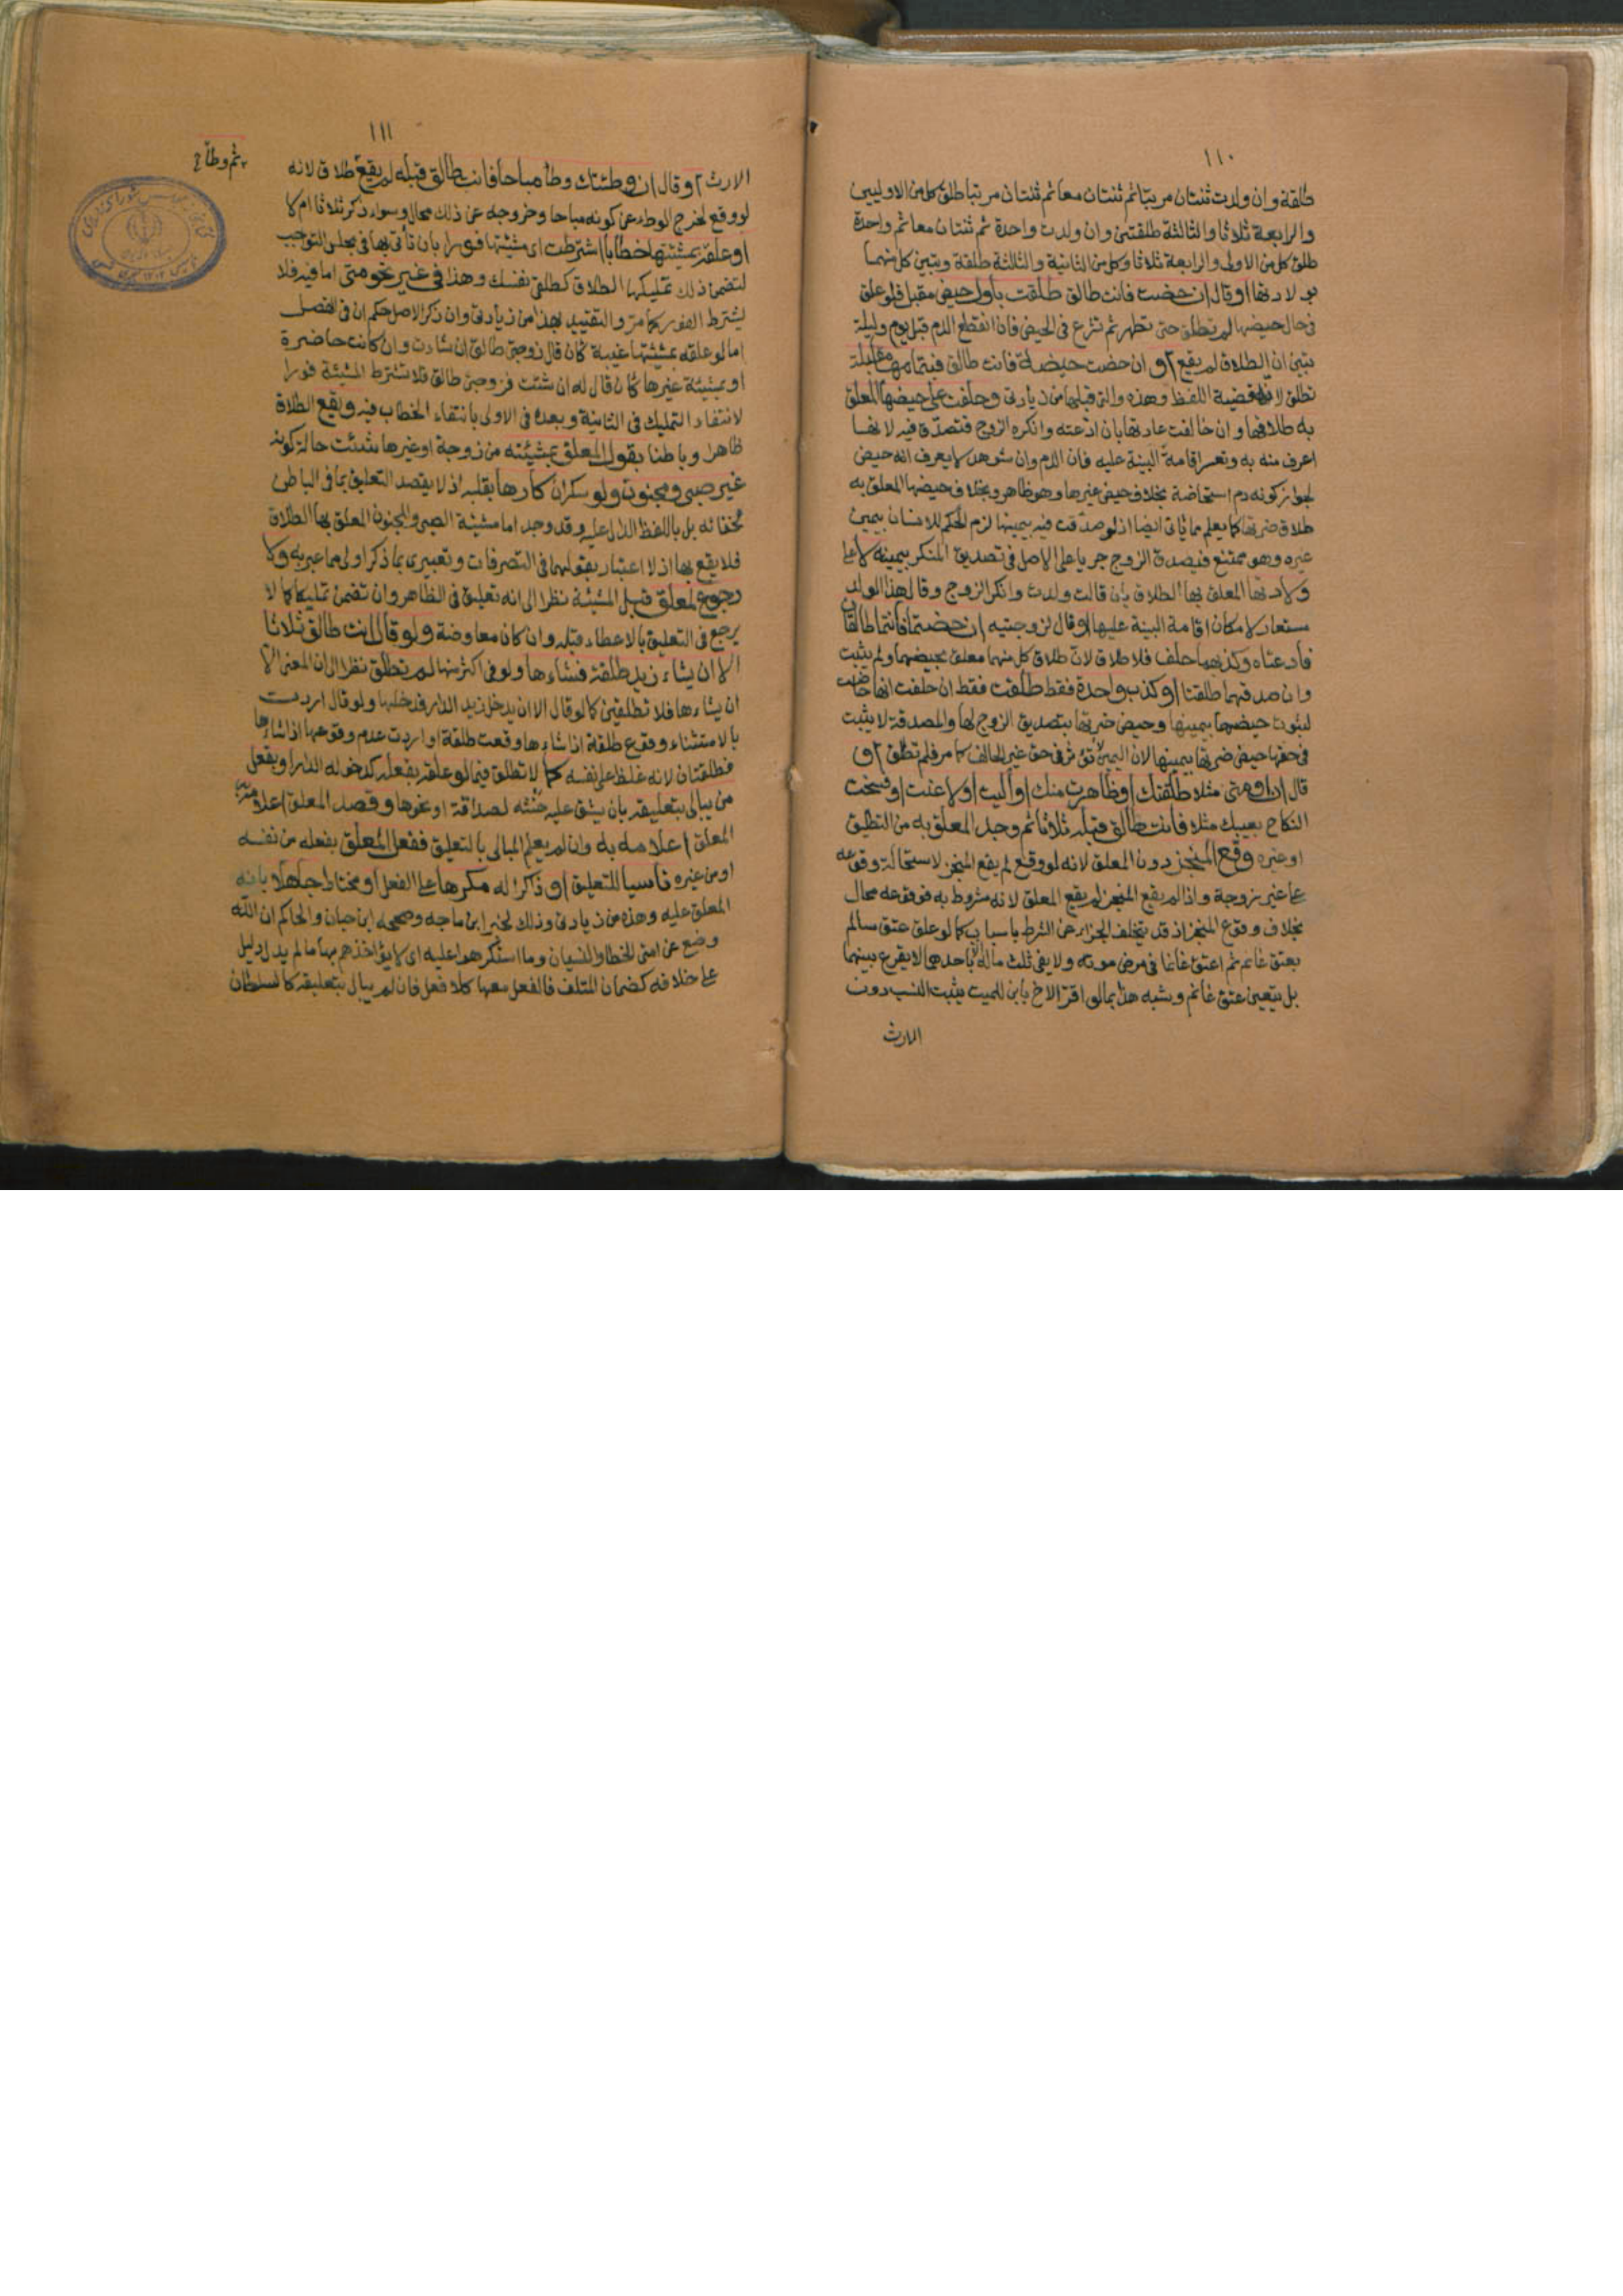 ١١٠
طلقة وان ولدت ثنتان مرتبا ثم ثنتان معا ثم ثنتان مرتبا طلق كل من الاوليين
والرابعة ثلاثا والثالثة طلقتين وان ولدت واحدة ثم ثنتان معا ثم واحدة
طلق كل من الاولى والرابعة ثلاثا وكل من الثانية والثالثة طلقة وتبين كل منهما
بولادتها او قال ان حضت فانت طالق طلقت باول حيض مقبل فلو علق
في حال حيضها لم تطلق حتى تطهر ثم تشرع في الحيض فان انقطع الدم قبل يوم وليلة
تبين ان الطلاق لم يقع او ان حضت حيضة فانت طالق فبتمامها مقبلة
تطلق لانه قضية اللفظ وهذه والتي قبلها من زيادتي وحلفت على حيضها المعلق
به طلاقها وان خالفت عادتها بان ادعته وانكره الزوج فتصدق فيه لانها
اعرف منه به وتعسر اقامة البينة عليه فان الدم وان شوهد لا يعرف انه حيض
لجواز كونه دم استحاضة بخلاف حيض غيرها وهو ظاهر وبخلاف حيضها المعلق به
طلاق ضرتها كما يعلم مما ياتي ايضا اذ لو صدقت فيه بيمينها لزم الحكم للانسان بيمين
غيره وهو ممتنع فيصدق الزوج جريا على الاصل في تصديق المنكر بيمينه لا على
ولادتها المعلق بها الطلاق بان قالت ولدت وانكر الزوج وقال هذا الولد
مستعار لامكان اقامة البينة عليها او قال لزوجتيه ان حضتما فانتما طالقان
فادعتاه وكذبهما حلف فلا طلاق لان طلاق كل منهما معلق بحيضهما ولم يثبت
وان صدقهما طلقتا او كذب واحدة فقط طلقت فقط ان حلفت انها حاضت
لثبوت حيضها بيمينها وحيض ضرتها بتصديق الزوج لها والمصدقة لا يثبت
في حقها حيض ضرتها بيمينها لان اليمين لا تؤثر في حق غير الحالف كما مر فلم تطلق او
قال ان او متى مثلا طلقتك او ظاهرت منك او آليت او لاعنت او فسخت
النكاح بعيبك مثلا فانت طالق قبله ثلاثا ثم وجد المعلق به من التطليق
او غيره وقع المنجز دون المعلق لانه لو وقع لم يقع المنجز لاستحالة وقوعه
على غير زوجة واذا لم يقع المنجز لم يقع المعلق لانه مشروط به فوقوعه محال
بخلاف وقوع المنجز اذ قد يتخلف الجزاء عن الشرط باسباب كما لو علق عتق سالم
بعتق غانم ثم اعتق غانما في مرض موته ولا يفي ثلث ماله الا باحدهما لا يقرع بينهما
بل يتعين عتق غانم وشبه هذا بما لو اقر الاخ بابن للميت يثبت النسب دون
الارث
١١١
الارث او قال ان وطئتك وطأ مباحا فانت طالق قبله لم يقع طلاق لانه
ثم وطأ
لو وقع لخرج الوطء عن كونه مباحا وخروجه عن ذلك محال وسواء ذكر ثلاثا ام لا
او علقه بمشيئتها خطابا اشترطت اي مشيئتها فورا بان تأتي بها في مجلس التواجب
لتضمن ذلك تمليكها الطلاق كطلقي نفسك وهذا في غير نحو متى اما فيه فلا
يشترط الفور كما مر والتقييد بهذا من زيادتي وان ذكر الاصل حكم ان في الفصل
اما لو علقه بمشيئتها غيبة كان قال زوجتي طالق ان شاءت وان كانت حاضرة
او بمشيئة غيرها كان قال له ان شئت فزوجتي طالق فلا تشترط المشيئة فورا
لانتفاء التمليك في الثانية وبعده في الاولى بانتفاء الخطاب فيه ويقع الطلاق
ظاهرا وباطنا بقول المعلق بمشيئته من زوجة او غيرها شئت حالة كونه
غير صبي ومجنون ولو سكران كارها بقلبه اذ لا يقصد التعليق بما في الباطن
لخفائه بل باللفظ الدال عليه وقد وجد اما مشيئة الصبي والمجنون المعلق بها الطلاق
فلا يقع بها اذ لا اعتبار بقولهما في التصرفات وتعبيري بما ذكر اولى مما عبر به ولا
رجوع لمعلق قبل المشيئة نظرا الى انه تعليق في الظاهر وان تضمن تمليكا كما لا
يرجع في التعليق بالاعطاء قبله وان كان معاوضة ولو قال انت طالق ثلاثا
الا ان يشاء زيد طلقة فشاءها ولو في اكثر منها لم تطلق نظرا الى ان المعنى الا
ان يشاءها فلا تطلقين كما لو قال الا ان يدخل زيد الدار فدخلها ولو قال اردت
بالاستثناء وقوع طلقة اذا شاءها وقعت طلقة او اردت عدم وقوعها اذا شاءها
فطلقتان لانه غلظ على نفسه كما لا تطلق فيما لو علقه بفعله كدخوله الدار او بفعل
من يبالي بتعليقه بان يشق عليه حنثه لصداقة او نحوها وقصد المعلق اعلامه
المعلق اعلامه به وان لم يعلم المبالي بالتعليق ففعل المعلق بفعله من نفسه
او من غيره ناسيا للتعليق او ذاكرا له مكرها على الفعل او مختارا جاهلا بانه
المعلق عليه وهذه من زيادتي وذلك لخبر ابن ماجه وصححه ابن حبان والحاكم ان الله
وضع عن امتي الخطا والنسيان وما استكرهوا عليه اي لا يؤاخذهم بها ما لم يدل دليل
على خلافه كضمان المتلف فالفعل معها كلا فعل فان لم يبال بتعليقه كالسلطان